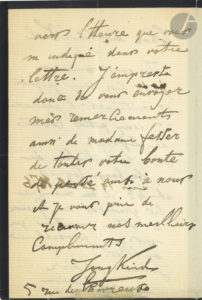 vers l'heure que vous
m indiqué dans votre
lettre. J'empreste
donc de vous envoyer
mes remerciements
aussi de madame fesser
de toutes votre bonté
à nous
et je vous prie de
recevoir nos meilleurs
Compliments
Jongkind
5 rue de